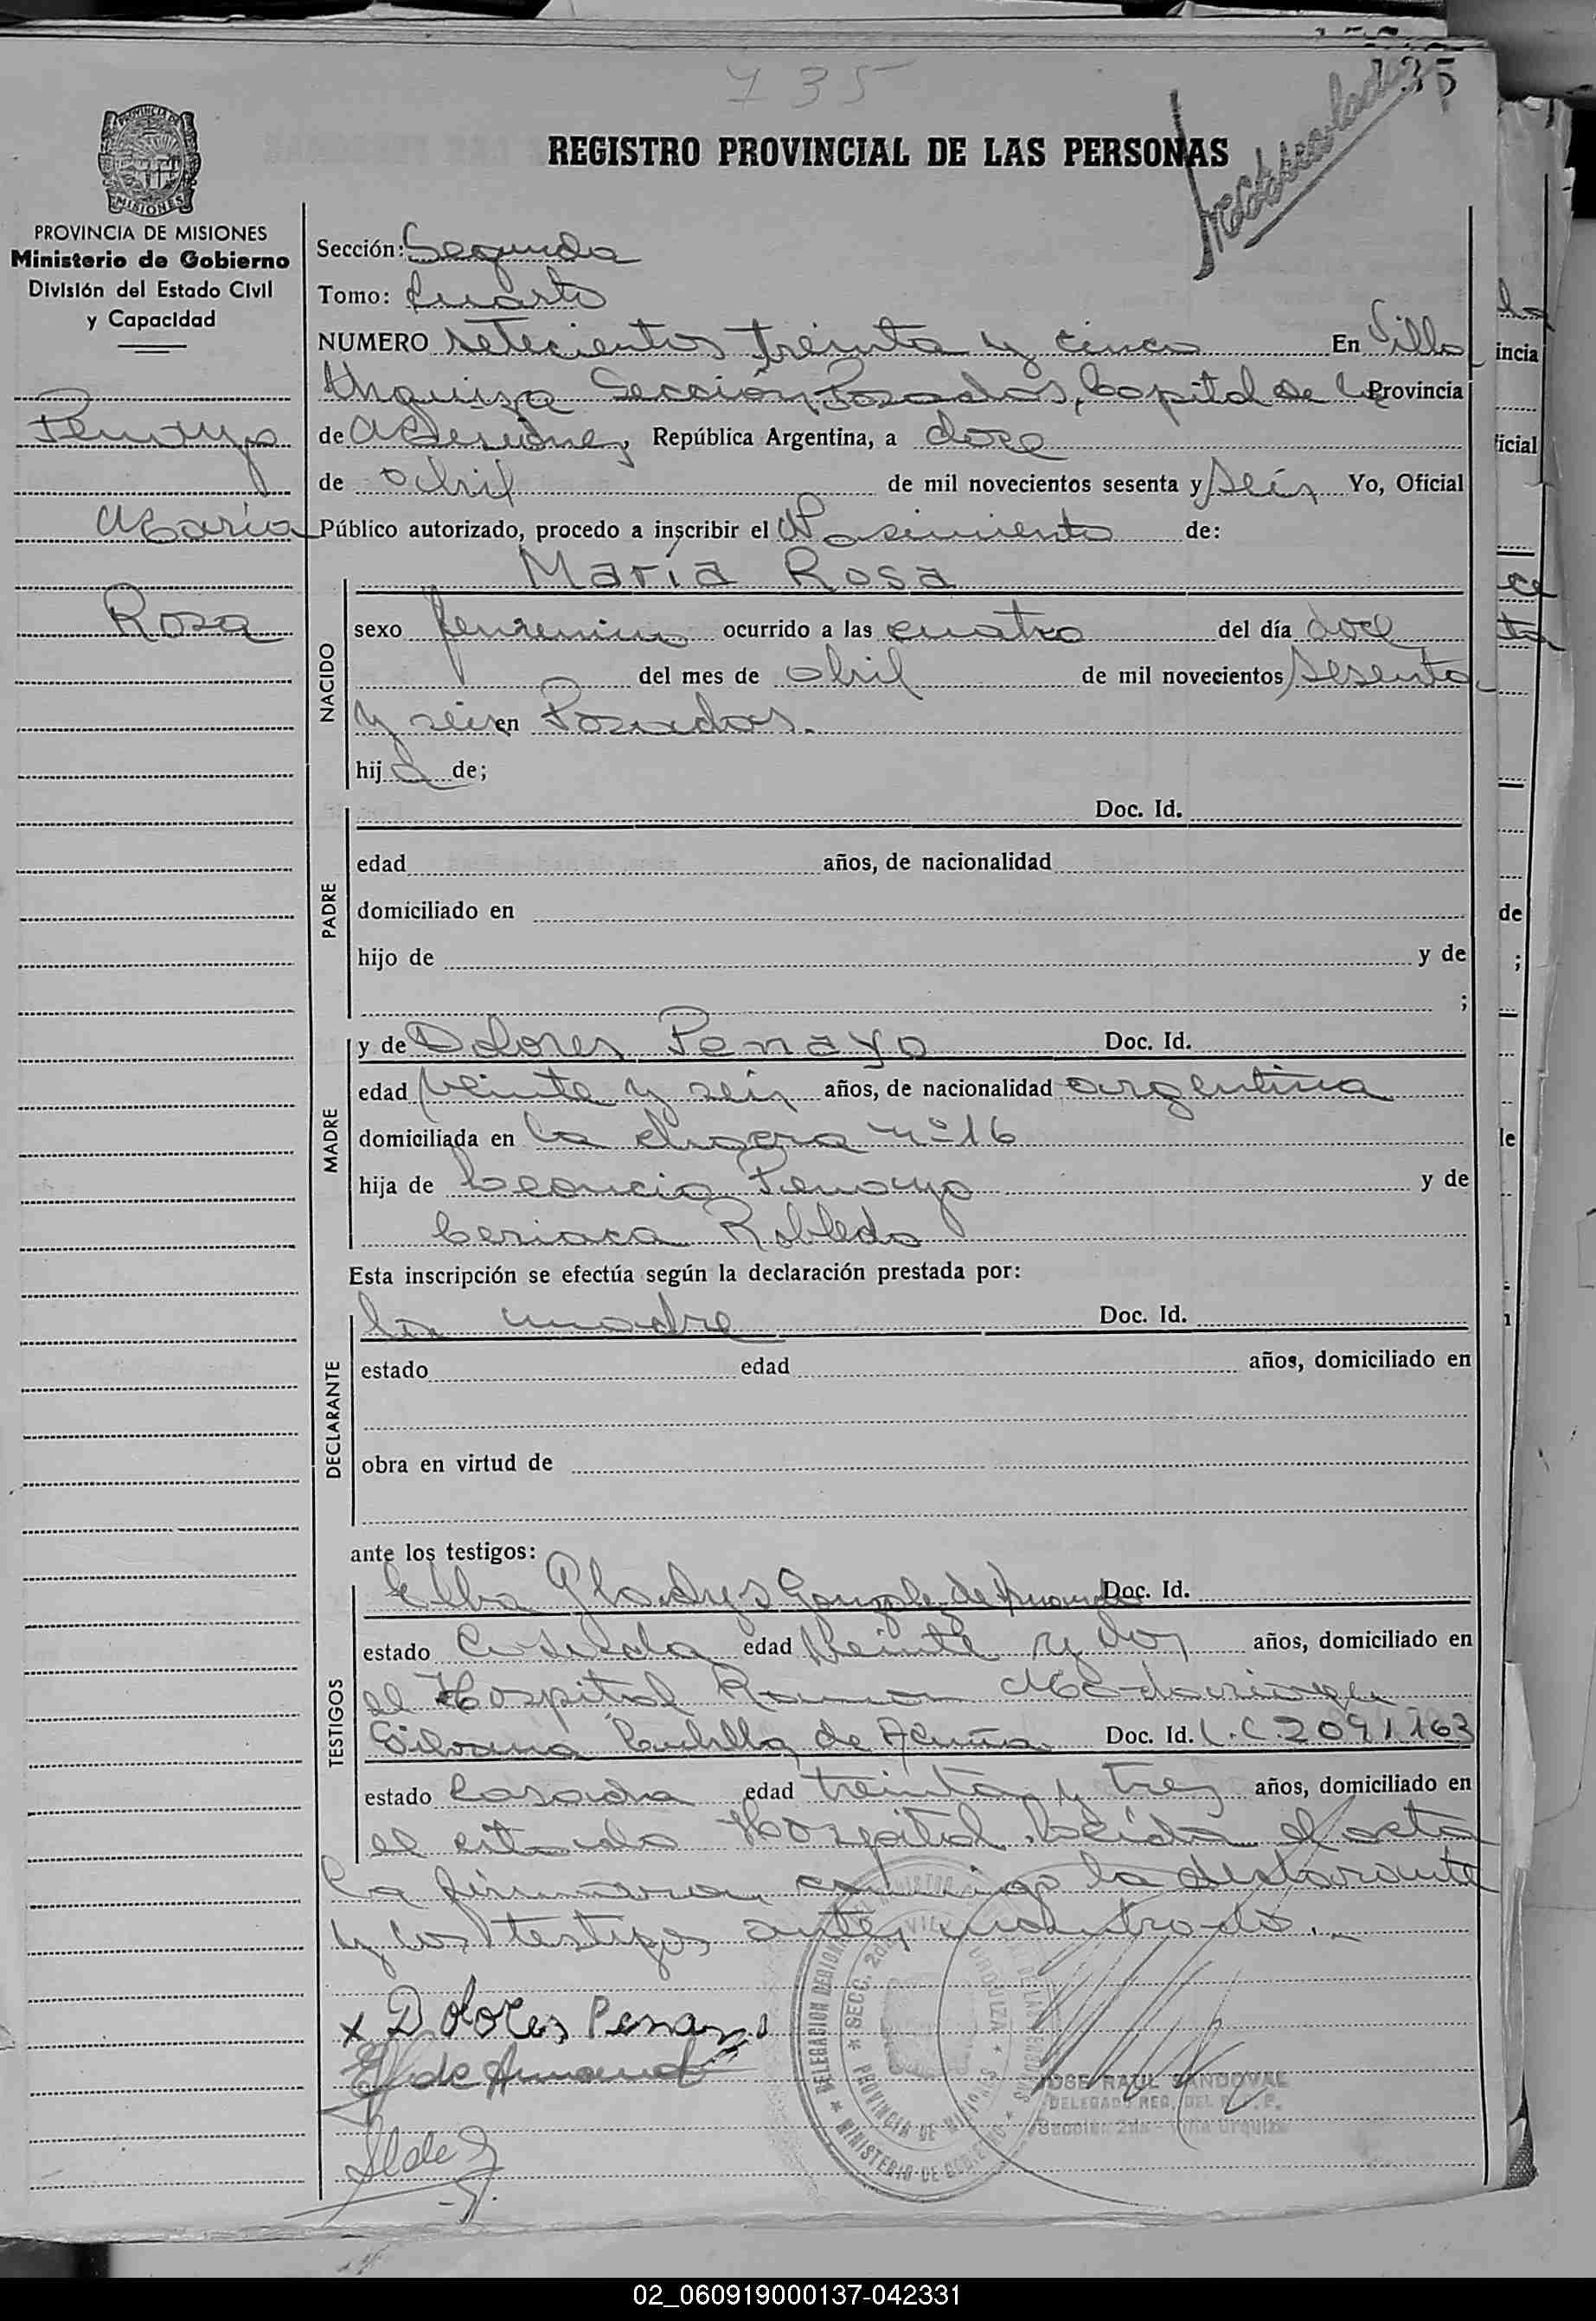 735
135
REGISTRO PROVINCIAL DE LAS PERSONAS
PROVINCIA DE MISIONES
Ministerio de Gobierno
División del Estado Civil
y Capacidad
Penayo
Maria
Rosa
Sección: Segunda
Tomo: Cuarto
NUMERO setecientos treinta y cinco En Villa
Urquiza Sección Posadas, Capital de la Provincia
de Misiones, República Argentina, a doce
de abril de mil novecientos sesenta y seis Yo, Oficial
Público autorizado, procedo a inscribir el Nasimiento de:
NACIDO
María Rosa
sexo femenino ocurrido a las cuatro del día doce
del mes de abril de mil novecientos sesenta
y seis en Posadas.
hij a de;
PADRE
Doc. Id.
edad años, de nacionalidad
domiciliado en
hijo de y de
;
MADRE
y de Dolores Penayo Doc. Id.
edad veinte y seis años, de nacionalidad argentina
domiciliada en la chacra nº 16
hija de Leoncio Penayo y de
Ceriaca Robledo
Esta inscripción se efectúa según la declaración prestada por:
DECLARANTE
la madre Doc. Id.
estado edad años, domiciliado en
obra en virtud de
ante los testigos:
TESTIGOS
Elba Gladys Doc. Id.
estado casada edad veinte y dos años, domiciliado en
el Hospital Ramon Madariaga
Silvana de Acuña Doc. Id. L.C. 2091163
estado Casada edad treinta y tres años, domiciliado en
el citado Hospital. Leída el acta
la firmaron conmigo la declarante
y los testigos antes nombrado.
x Dolores Penayo
JOSE RAUL SANDOVAL
DELEGADO REG. DEL
Sección 2da - Villa Urquiza
02_060919000137-042331